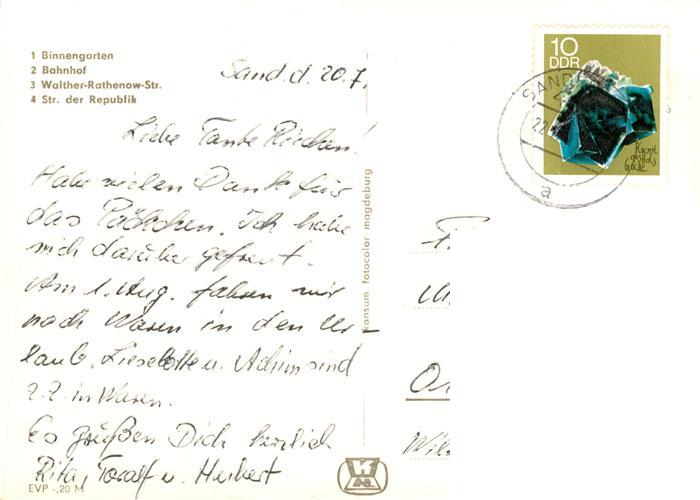 1 Binnengarten
2 Bahnhof
3 Walther-Rathenow-Str.
4 Str. der Republik
Sand. d. 20.7.
Liebe Tante Riechen!
Habe vielen Dank für
das Päckchen. Ich habe
mich darüber gefreut.
Am 1. Aug. fahren wir
nach Waren in den Ur-
laub. Lieselotte u. Achim sind
z. Z. in Waren.
Es grüßen Dich herzlich
Rita, Toralf u. Herbert
EVP -,20 M
konsum fotocolor magdeburg
10
DDR
SAND
22
a